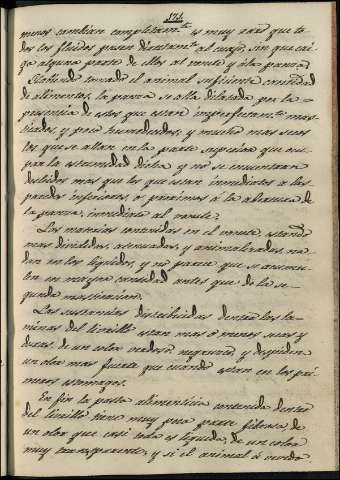 174.
menos cambian completam.te es muy raro que to-
dos los fluidos pasen directam.te al cuajo, sin que cai-
ga alguna parte de ellos al rumle y a la panza.
Habiendo tomado el animal suficiente cantidad
de alimentos, la panza se alla dilatada por la
presencia de estos que estan imperfectam.te mas-
ticados, y poco humedecidos, y mucho mas secos
los que se allan en la parte superior que ocu-
pan la estremidad dicha y no se encuentran
desleidos mas que los que estan inmediatos a las
paredes inferiores, o proximos a la abertura de
la panza, inmediata al rumle.
Las materias contenidas en el rumle estando
mas divididas, atenuadas, y animalizadas na-
dan en los liquidos, y no parece que se acumu-
len en mayor cantidad antes que de la se-
gunda masticacion.
Las sustancias distribuidas dentro las la-
minas del librillo estan mas o menos secas y
duras, de un color verdoso negruzco, y despiden
un olor mas fuerte que cuando estan en los pri-
meros estomagos.
En fin la pasta alimenticia contenida dentro
del librillo tiene muy poca parte fibrosa, de
un olor que casi toda es liquida, de un color
muy transparente, y si el animal a comido